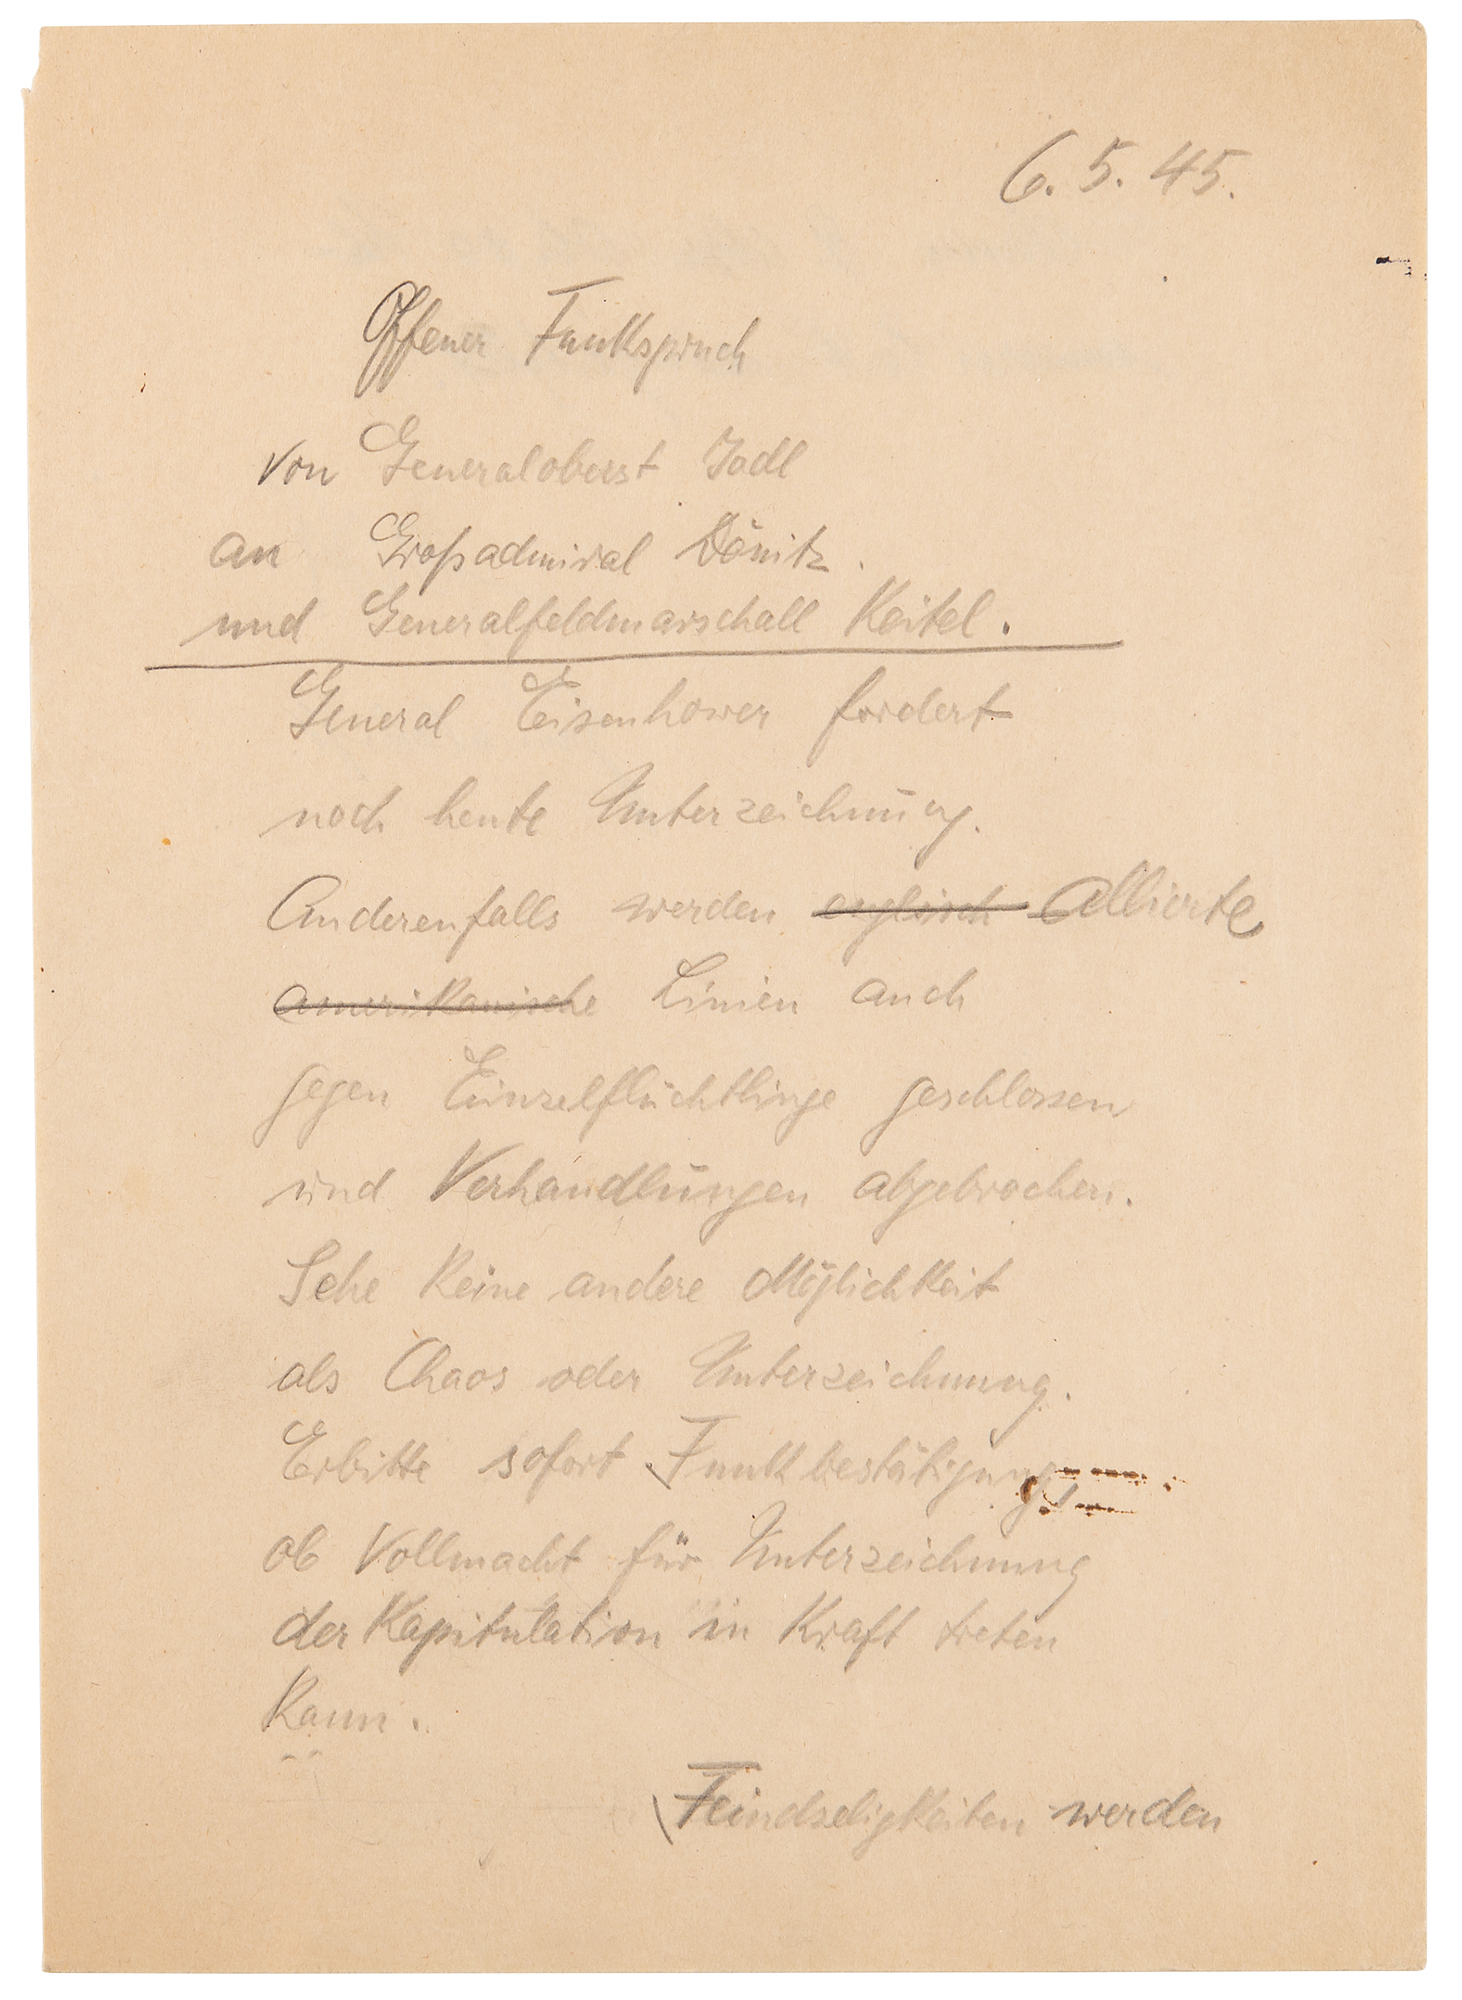 6. 5. 45.
Offener Funkspruch
von Generaloberst Jodl
an Großadmiral Dönitz.
und Generalfeldmarschall Keitel.
General Eisenhower fordert
noch heute Unterzeichnung.
Anderenfalls werden englisch Allierte
amerikanische Linien auch
gegen Einzelflüchtlinge geschlossen
und Verhandlungen abgebrochen.
Sehe keine andere Möglichkeit
als Chaos oder Unterzeichnung.
Erbitte sofort Funkbestätigung,
ob Vollmacht für Unterzeichnung
der Kapitulation in Kraft treten
kann.
Feindseligkeiten werden